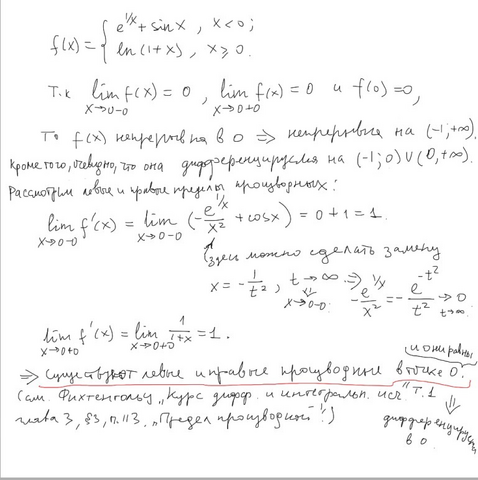 f(x) = { e^{1/x} + sin x , x < 0;
ln(1+x) , x ≥ 0.
Т.к lim_{x→0-0} f(x) = 0 , lim_{x→0+0} f(x) = 0 и f(0) = 0,
То f(x) непрерывна в 0 ⇒ непрерывна на (-1; +∞).
Кроме того, очевидно, что она дифференцируема на (-1; 0) ∪ (0, +∞).
Рассмотрим левые и правые пределы производных:
lim_{x→0-0} f'(x) = lim_{x→0-0} (-e^{1/x}/x² + cos x) = 0 + 1 = 1.
(здесь можно сделать замену
x = -1/t² , t → ∞ ⇒ -e^{1/x}/x² = -e^{-t²}/t² → 0
x→0-0 t→∞
lim_{x→0+0} f'(x) = lim_{x→0+0} 1/(1+x) = 1.
и они равны
⇒ существуют левые и правые производные в точке 0.
(см. Фихтенгольц „Курс дифф. и интегральн. исч" Т. 1
глава 3, §3, п. 113. „Предел производной"!)
⇓
в 0.